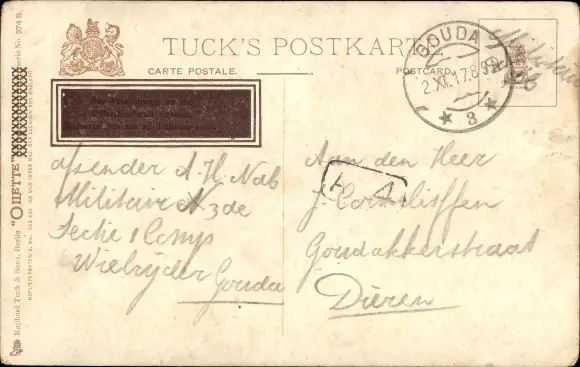 TUCK'S POSTKARTE
CARTE POSTALE.
POSTCARD
GOUDA
2.XI.17.8
3
Serie No. 974 B.
"OILETTE"
Raphael Tuck & Sons, Berlin
afsender A. H. Nab
Militair 3de
Sectie 1 Comp
Wielrijder
Gouda
Aan den Heer
J. Cornelissen
Goudakkerstraat
Dieren